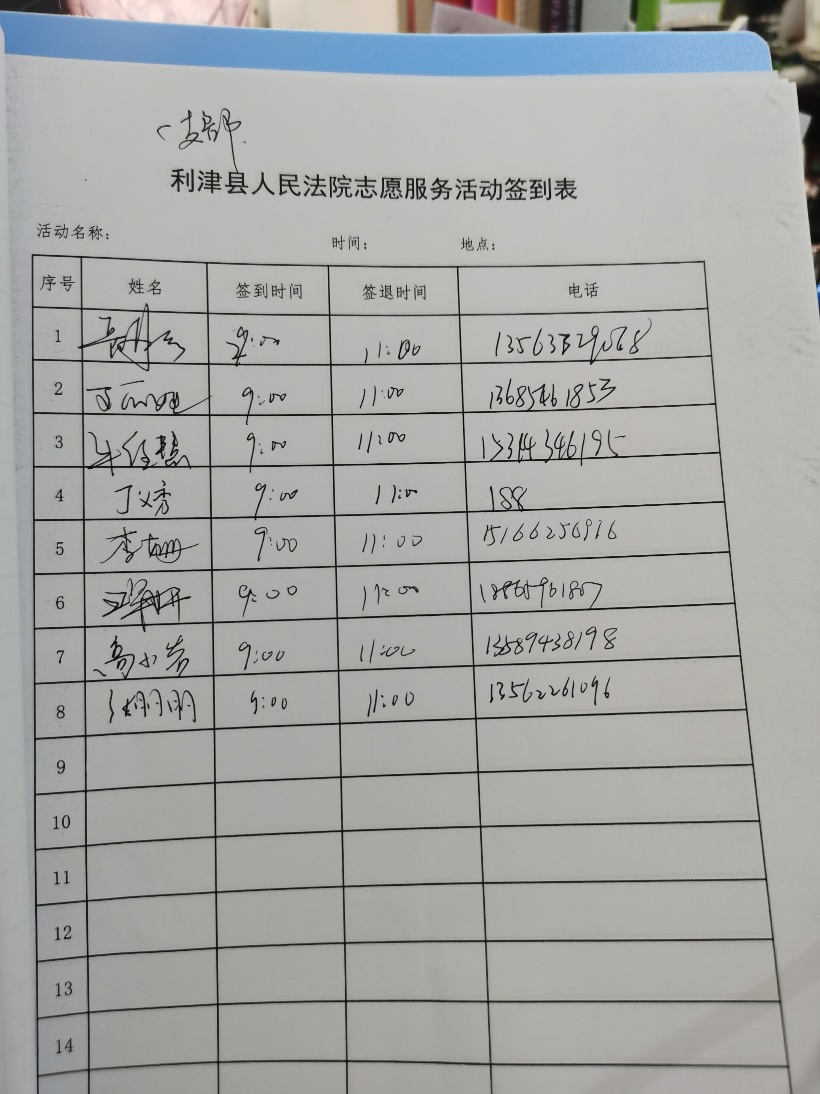 支部
利津县人民法院志愿服务活动签到表
活动名称： 时间： 地点：
序号 姓名 签到时间 签退时间 电话
1 9:00 11:00
2 9:00 11:00 13685461853
3 9:00 11:00 15314346195
4 丁义秀 9:00 11:00 188
5 李 9:00 11:00 15166256916
6 9:00 11:00 18865961807
7 高小岩 9:00 11:00 13589438198
8 明明 9:00 11:00 13562261096
9
10
11
12
13
14